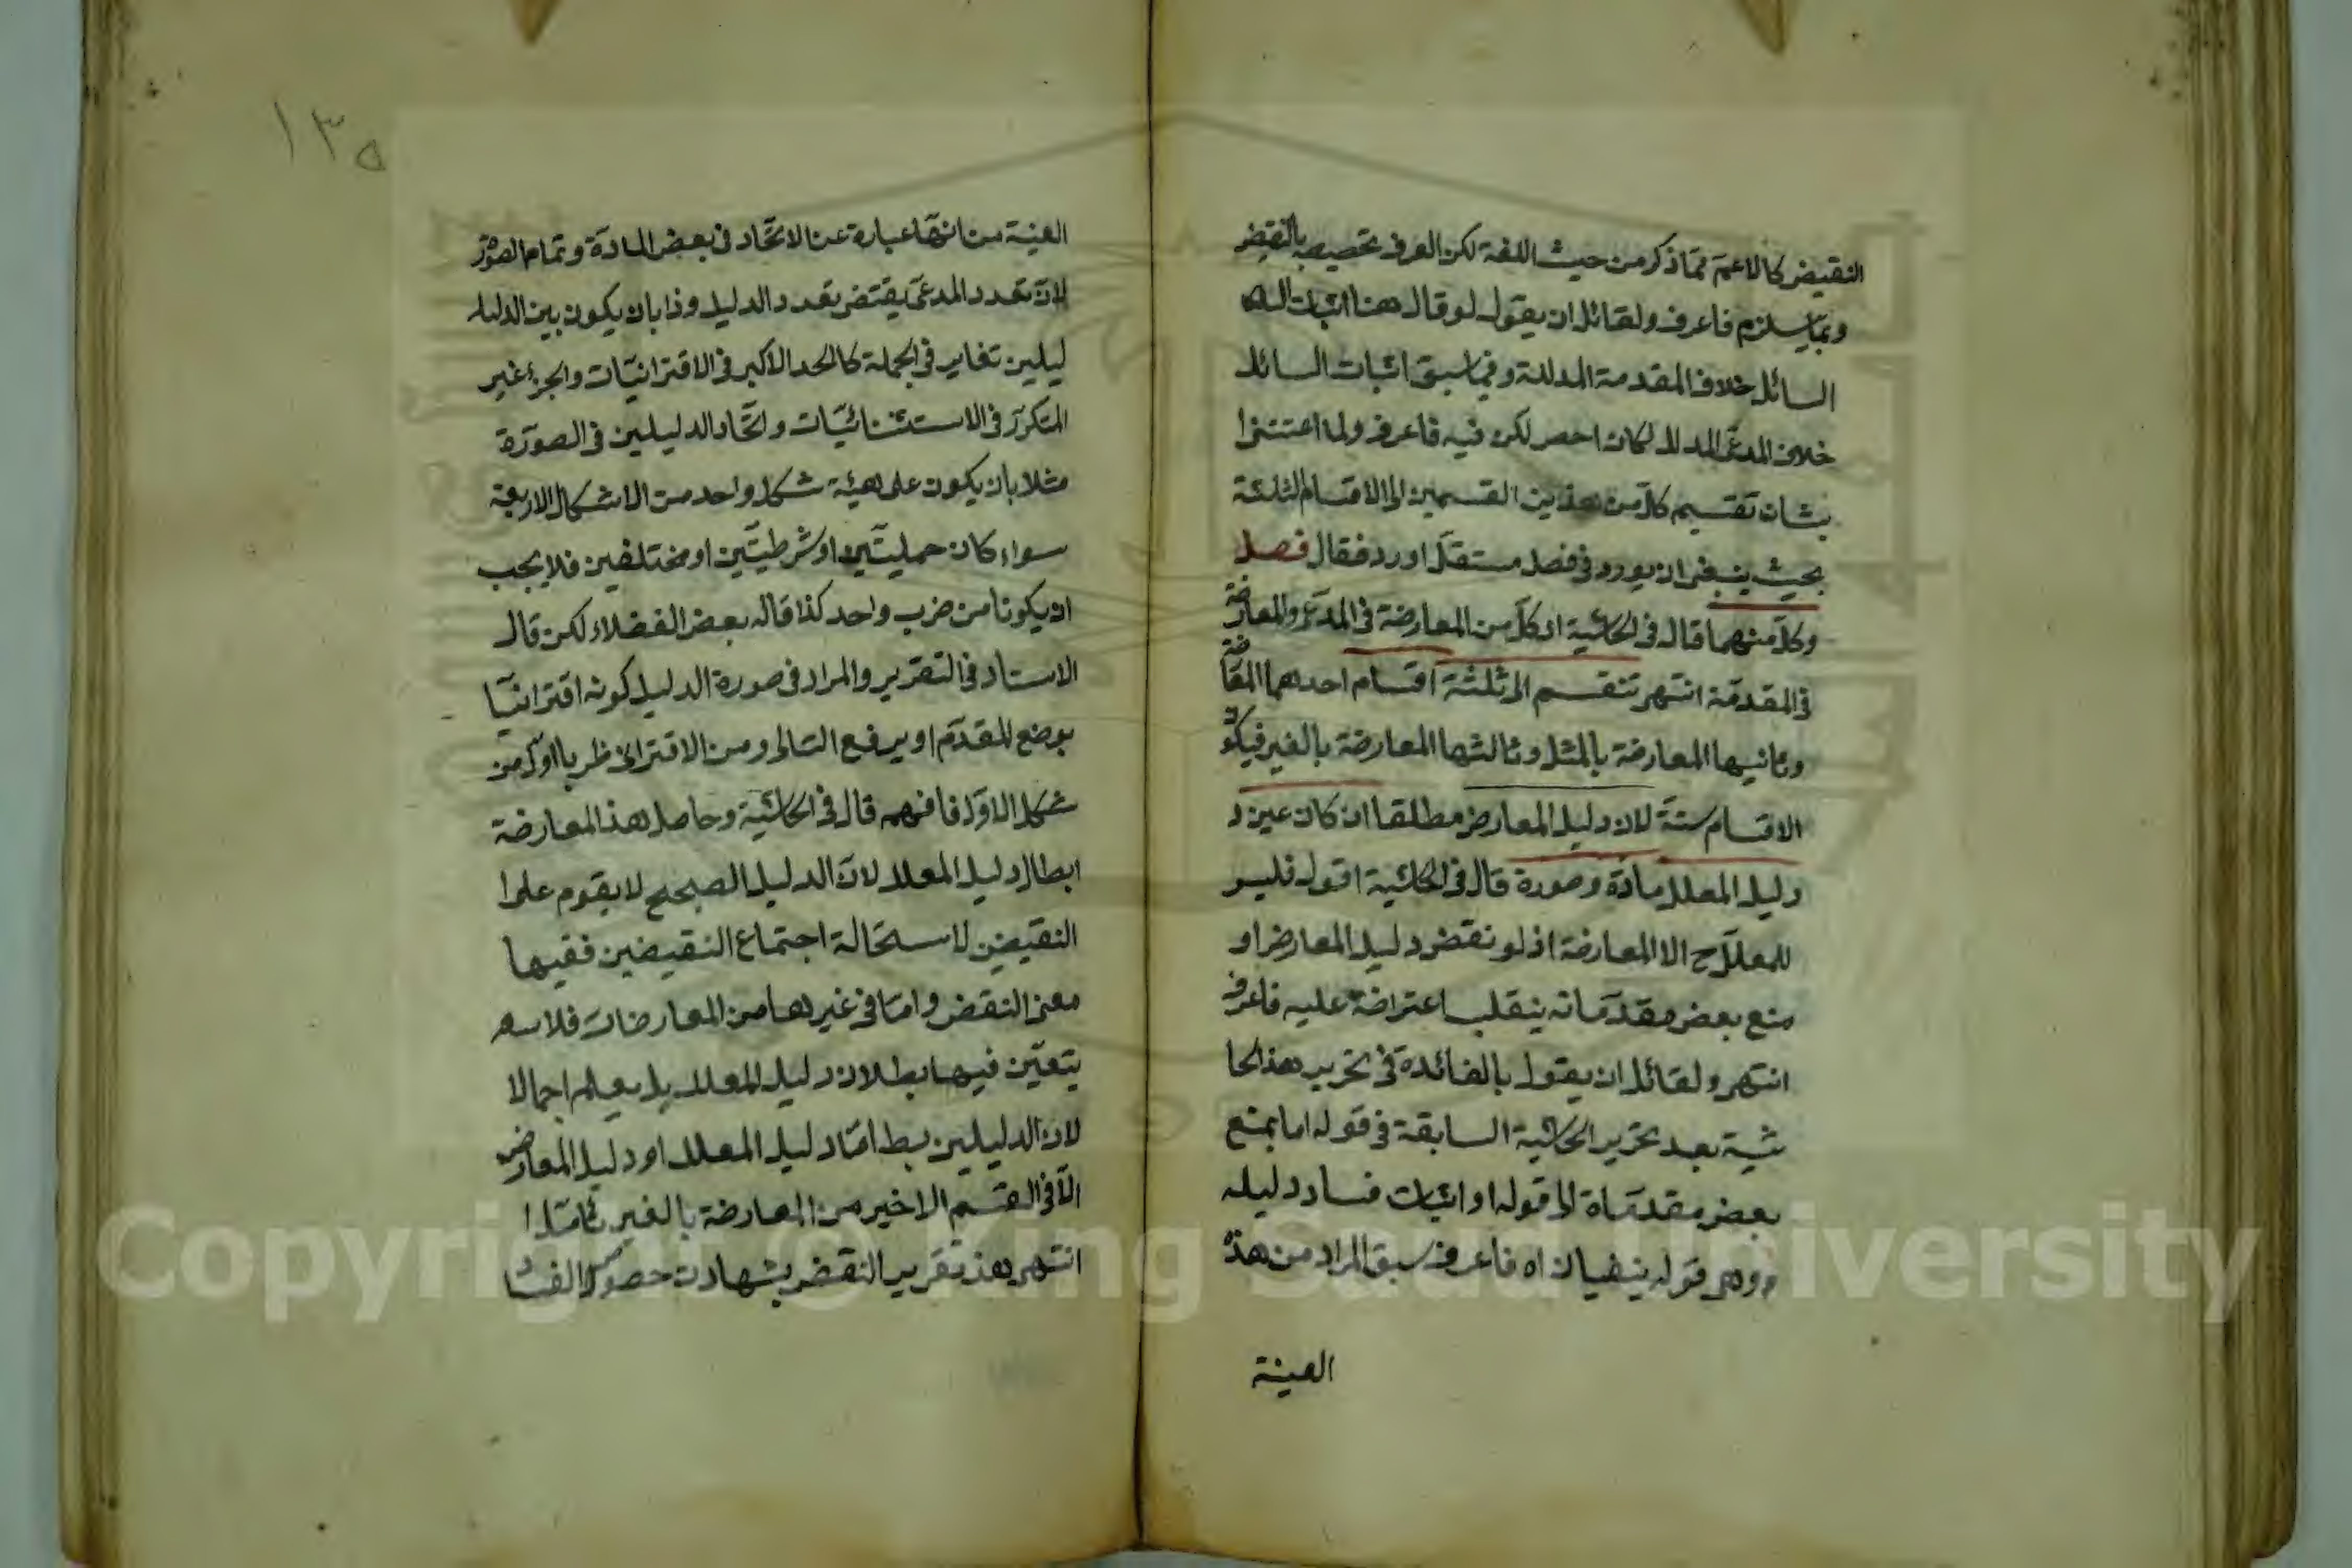 النقيض كالاعم مما ذكر من حيث اللغة لكن العرف تخصيصه بالنقيض
وبما يستلزم فاعرف ولقائل ان يقول لو قال هنا اثبات
السائل خلاف المقدمة المدللة وفيما سبق اثبات السائل
خلاف المدعى المدلل لكان احصر لكن فيه فاعرف ولما اعتنى
بشان تقسيم كل من هذين القسمين الى الاقسام الثلثة
بحيث ينبغى ان يورد فى فصل مستقل اورد فقال فصل
وكل منهما قال فى الحاشية اى كل من المعارضة فى المدعى والمعارضة
فى المقدمة انتهى تنقسم الى ثلثة اقسام احدهما
وثانيها المعارضة بالمثل وثالثها المعارضة بالغير فيكون
الاقسام ستة لان دليل المعارض مطلقا ان كان عين د
دليل المعلل مادة وصورة قال فى الحاشية اقول فليس
للمعلل ح الا المعارضة اذ لو نقض دليل المعارض او
منع بعض مقدماته ينقلب اعتراضه عليه فاعرف
انتهى ولقائل ان يقول بالفائدة فى تحرير هذا الحا
شية بعد تحرير الحاشية السابقة فى قوله اما بمنع
بعض مقدماة الى قوله او اثبات فساد دليله
وهى قوله ينبغى ان اه فاعرف سبق المراد من هذه
العينة
١٣٥
العينة من انها عبارة عن الاتحاد فى بعض المادة وتمام الصورة
لان تعدد المدعى يقتضى تعدد الدليل وذا بان يكون بين الدليل
ليلين تغاير فى الجملة كالحد الاكبر فى الاقترانيات والجزء غير
المتكرر فى الاستثنائيات واتحاد الدليلين فى الصورة
مثلا بان يكون على هيئة شكل واحد من الاشكال الاربعة
سواء كان حمليتين او شرطيتين او مختلفين فلا يجب
ان يكونا من ضرب واحد كذا قاله بعض الفضلاء لكن قال
الاستاد فى التقرير والمراد فى صورة الدليل كونه اقترانيا
بوضع المقدم او يرفع التالى ومن الاقترانى ضربا اول من
شكل الاول فافهم قال فى الحاشية وحاصل هذا المعارضة
ابطال دليل المعلل لان الدليل الصحيح لا يقوم على ا
النقيضين لاستحالة اجتماع النقيضين ففيها
معنى النقض واما فى غيرها من المعارضات فلا
يتعين فيها بطلان دليل المعلل بل يعلم اجمالا
لان الدليلين بط اما دليل المعلل او دليل المعارض
الا فى القسم الاخير من المعارضة بالغير تامل ا
انتهى هذ تقرير النقض بشهادت حصول الفساد
Copyright © King Saud University